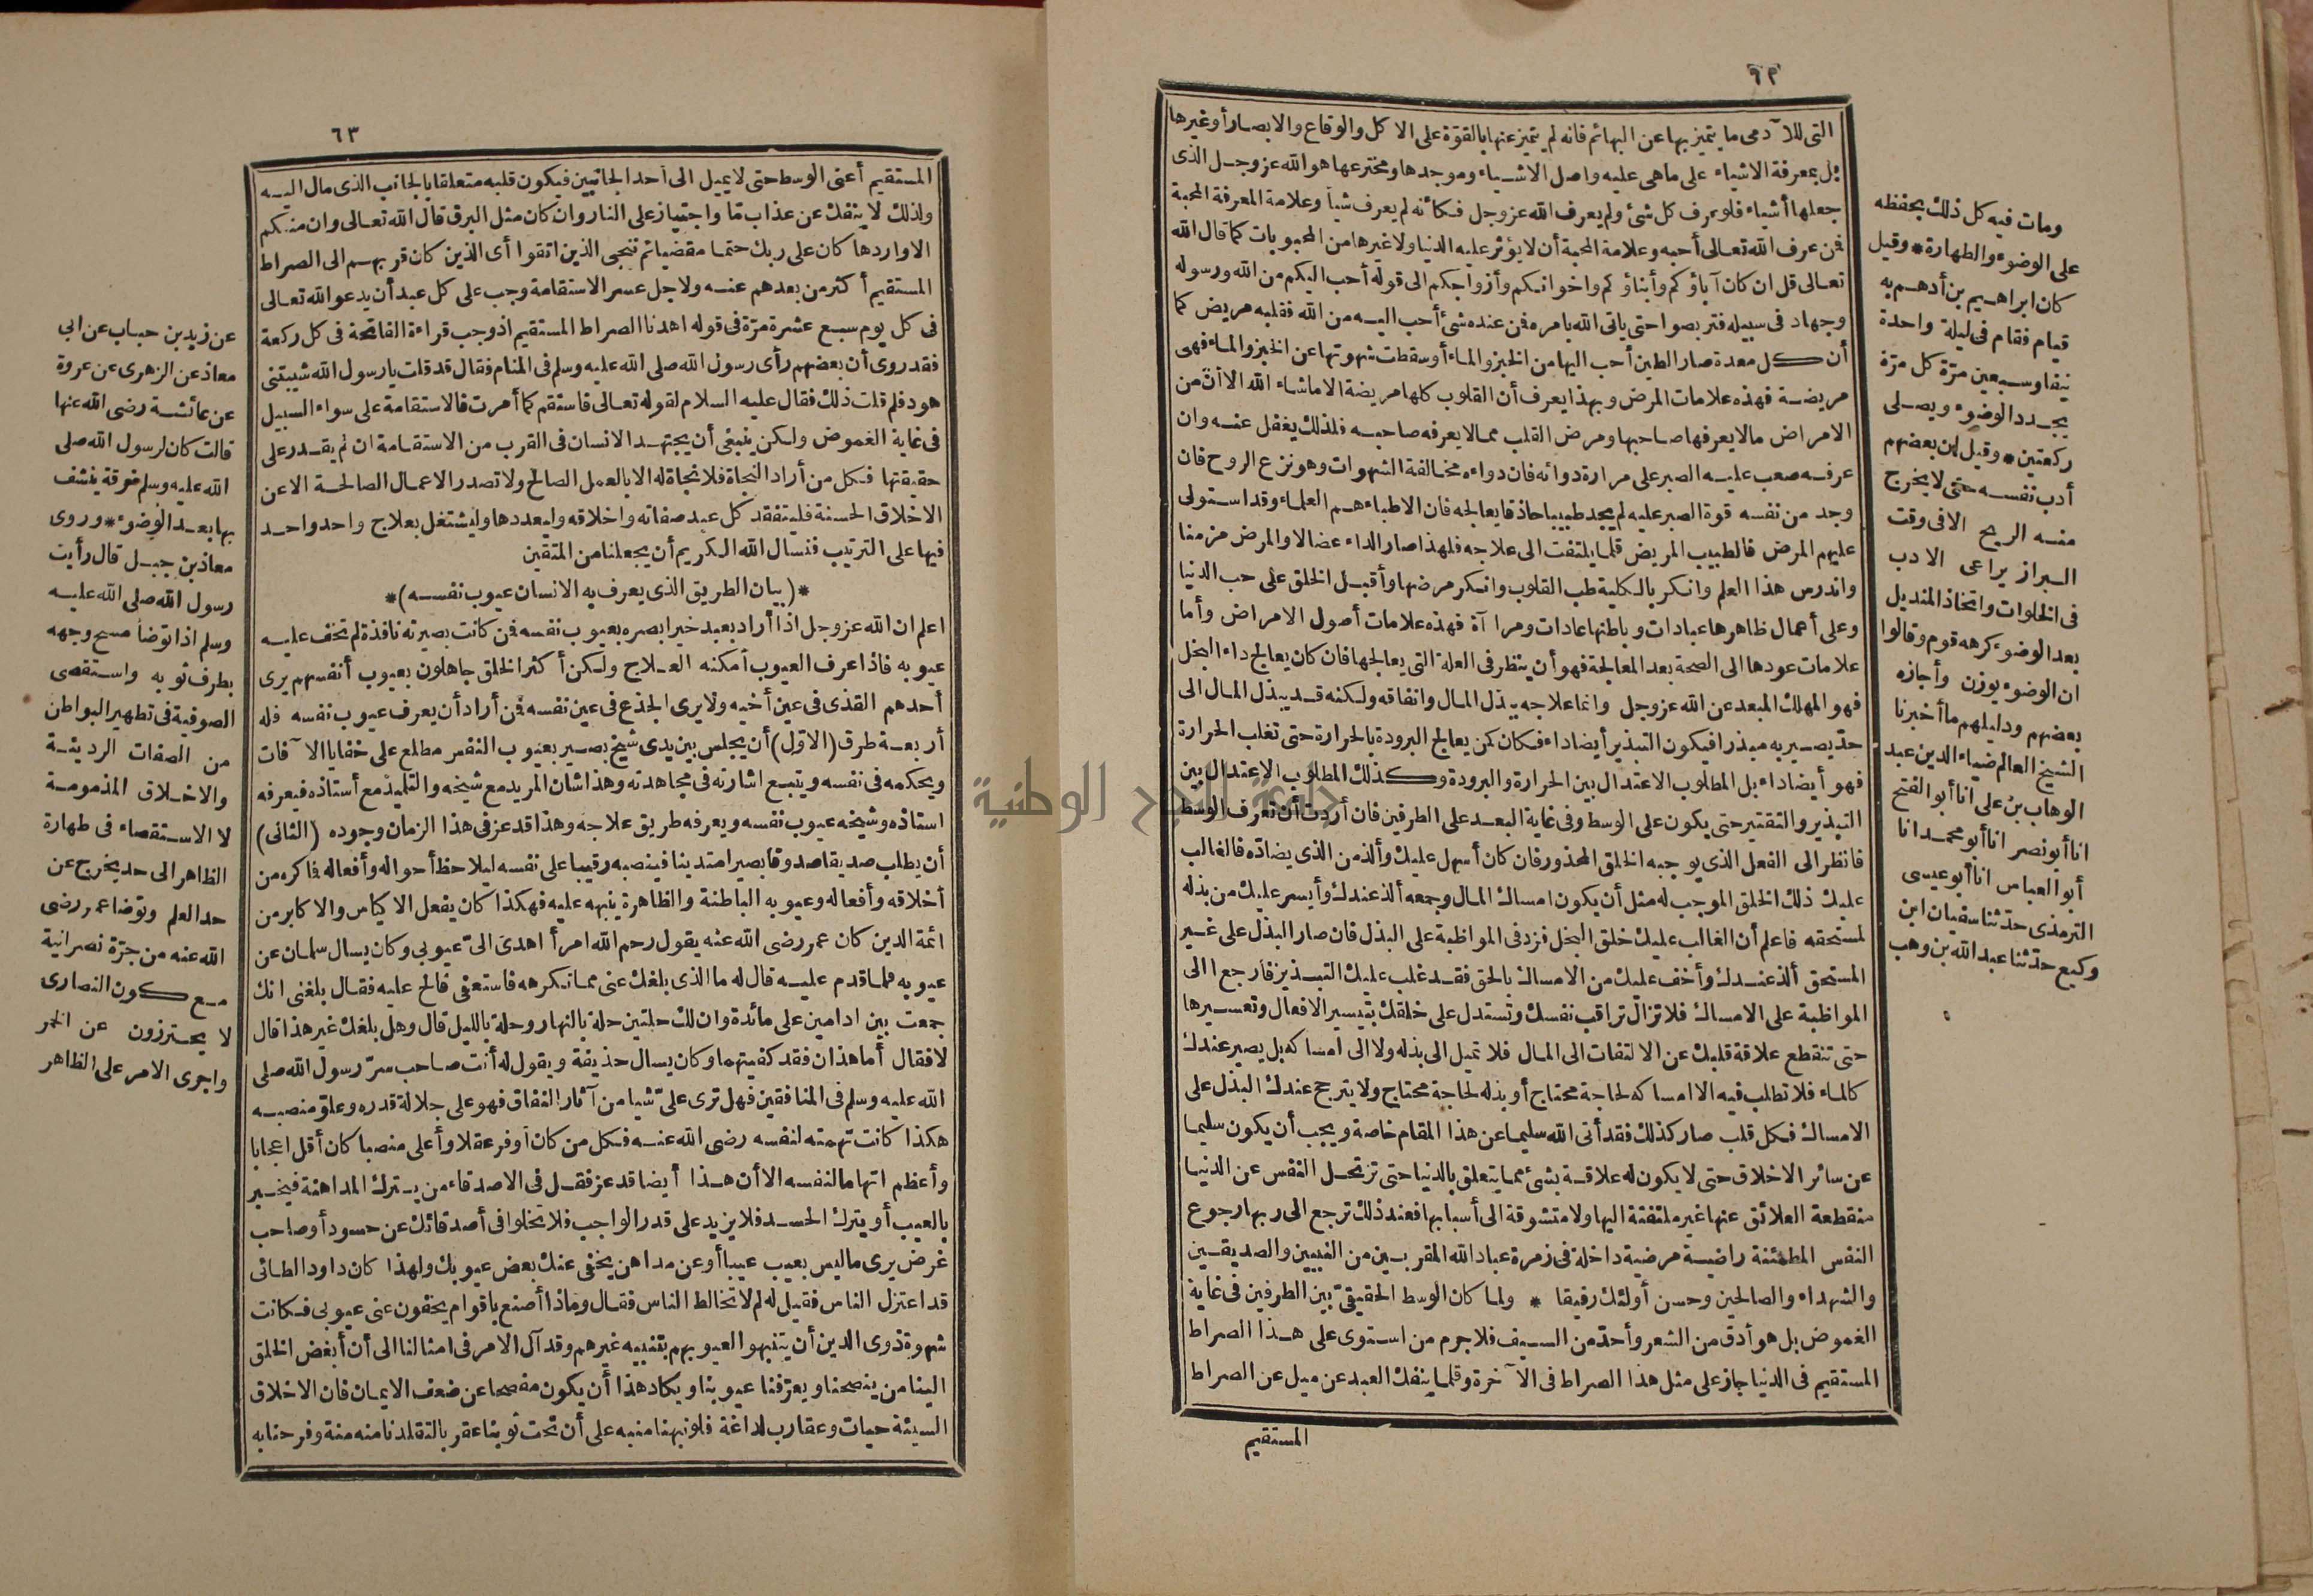 ٦٢
التى للآدمى ما يتميز بها عن البهائم فانه لم يتميز عنها بالقوّة على الاكل والوقاع والابصار أوغيرها
بل بمعرفة الاشياء على ماهى عليه واصل الاشياء وموجدها ومخترعها هو الله عز وجل الذى
جعلها أشياء فلوعرف كل شئ ولم يعرف الله عز وجل فكأنه لم يعرف شيأ وعلامة المعرفة المحبة
فمن عرف الله تعالى أحبه وعلامة المحبة أن لا يؤثر عليه الدنيا ولا غيرها من المحبوبات كما قال الله
تعالى قل ان كان آباؤكم وأبناؤكم واخوانكم وأزواجكم الى قوله أحب اليكم من الله ورسوله
وجهاد فى سبيله فتربصوا حتى ياتى الله بامره فمن عنده شئ أحب اليه من الله فقلبه مريض كما
أن كل معدة صار الطين أحب اليها من الخبز والماء أوسقطت شهوتها عن الخبز والماء فهى
مريضة فهذه علامات المرض وبهذا يعرف أن القلوب كلها مريضة الا ماشاء الله الا أنّ من
الامراض مالا يعرفها صاحبها ومرض القلب مما لا يعرفه صاحبه فلذلك يغفل عنه وان
عرفه صعب عليه الصبر على مرارة دوائه فان دواءه مخالفة الشهوات وهو نزع الروح فان
وجد من نفسه قوة الصبر عليه لم يجد طبيبا حاذقا يعالجه فان الاطباء هم العلماء وقد استولى
عليهم المرض فالطبيب المريض قلما يلتفت الى علاجه فلهذا صار الداء عضالا والمرض مزمنا
واندرس هذا العلم وانكر بالكلية طب القلوب وانكر مرضها وأقبل الخلق على حب الدنيا
وعلى أعمال ظاهرها عبادات وباطنها عادات ومراآة فهذه علامات أصول الامراض وأما
علامات عودها الى الصحة بعد المعالجة فهو أن ينظر فى العلة التى يعالجها فان كان يعالج داء البخل
فهو المهلك المبعد عن الله عز وجل وانما علاجه ببذل المال وانفاقه ولكنه قد يبذل المال الى
حدّ يصير به مبذرا فيكون التبذير أيضا داء فكان كمن يعالج البرودة بالحرارة حتى تغلب الحرارة
فهو أيضا داء بل المطلوب الاعتدال بين الحرارة والبرودة وكذلك المطلوب الاعتدال بين
التبذير والتقتير حتى يكون على الوسط وفى غاية البعد على الطرفين فان أردت أن تعرف الوسط
فانظر الى الفعل الذى يوجبه الخلق المحذور فان كان أسهل عليك وألذ من الذى يضادّه فالغالب
عليك ذلك الخلق الموجب له مثل أن يكون امساك المال وجمعه ألذ عندك وأيسر عليك من بذله
لمستحقه فاعلم أن الغالب عليك خلق البخل فزد فى المواظبة على البذل فان صار البذل على غير
المستحق ألذ عندك وأخف عليك من الامساك بالحق فقد غلب عليك التبذير فارجع الى
المواظبة على الامساك فلا تزال تراقب نفسك وتستدل على خلقك بتيسير الافعال وتعسيرها
حتى تنقطع علاقة قلبك عن الالتفات الى المال فلا تميل الى بذله ولا الى امساكه بل يصير عندك
كالماء فلا تطلب فيه الا امساكه لحاجة محتاج أو بذله لحاجة محتاج ولا يترجح عندك البذل على
الامساك فكل قلب صار كذلك فقد أتى الله سليما عن هذا المقام خاصة ويجب أن يكون سليما
عن سائر الاخلاق حتى لا يكون له علاقة بشئ مما يتعلق بالدنيا حتى ترتحل النفس عن الدنيا
منقطعة العلائق عنها غير ملتفتة اليها ولا متشوقة الى أسبابها فعند ذلك ترجع الى ربها رجوع
النفس المطمئنة راضية مرضية داخلة فى زمرة عباد الله المقربين من النبيين والصديقين
والشهداء والصالحين وحسن أولئك رفيقا * ولما كان الوسط الحقيقىّ بين الطرفين فى غاية
الغموض بل هو أدق من الشعر وأحدّ من السيف فلاجرم من استوى على هذا الصراط
المستقيم فى الدنيا جاز على مثل هذا الصراط فى الآخرة وقلما ينفك العبد عن ميل عن الصراط
المستقيم
ومات فيه كل ذلك يحفظه
على الوضوء والطهارة * وقيل
كان ابراهيم بن أدهم به
قيام فقام فى ليلة واحدة
نيفا وسبعين مرّة كل مرّة
يجدد الوضوء ويصلى
ركعتين * وقيل ان بعضهم
أدب نفسه حتى لا يخرج
منه الريح الا فى وقت
البراز يراعى الادب
فى الخلوات واتخاذ المنديل
بعد الوضوء كرهه قوم وقالوا
ان الوضوء يوزن وأجازه
بعضهم ودليلهم ما أخبرنا
الشيخ العالم ضياء الدين عبد
الوهاب بن على انا أبو الفتح
انا أبو نصر انا أبو محمد انا
أبو العباس انا أبو عيسى
الترمذى حدّثنا سفيان ابن
وكيع حدّثنا عبد الله بن وهب
٦٣
المستقيم أعنى الوسط حتى لا يميل الى أحد الجانبين فيكون قلبه متعلقا بالجانب الذى مال اليه
ولذلك لا ينفك عن عذاب مّا واجتياز على النار وان كان مثل البرق قال الله تعالى وان منكم
الا واردها كان على ربك حتما مقضيا ثم ننجى الذين اتقوا أى الذين كان قربهم الى الصراط
المستقيم أكثر من بعدهم عنه ولاجل عسر الاستقامة وجب على كل عبد أن يدعو الله تعالى
فى كل يوم سبع عشرة مرّة فى قوله اهدنا الصراط المستقيم اذ وجب قراءة الفاتحة فى كل ركعة
فقد روى أن بعضهم رأى رسول الله صلى الله عليه وسلم فى المنام فقال قد قلت يا رسول الله شيبتنى
هود فلم قلت ذلك فقال عليه السلام لقوله تعالى فاستقم كما أمرت فالاستقامة على سواء السبيل
فى غاية الغموض ولكن ينبغى أن يجتهد الانسان فى القرب من الاستقامة ان لم يقدر على
حقيقتها فكل من أراد النجاة فلا نجاة له الا بالعمل الصالح ولا تصدر الاعمال الصالحة الا عن
الاخلاق الحسنة فليتفقد كل عبد صفاته واخلاقه وليعددها وليشتغل بعلاج واحد واحد
فيها على الترتيب فنسال الله الكريم أن يجعلنا من المتقين
*(بيان الطريق الذى يعرف به الانسان عيوب نفسه)*
اعلم ان الله عز وجل اذا أراد بعبد خيرا بصره بعيوب نفسه فمن كانت بصيرته نافذة لم تخف عليه
عيوبه فاذا عرف العيوب أمكنه العلاج ولكن أكثر الخلق جاهلون بعيوب أنفسهم يرى
أحدهم القذى فى عين أخيه ولا يرى الجذع فى عين نفسه فمن أراد أن يعرف عيوب نفسه فله
أربعة طرق (الاوّل) أن يجلس بين يدى شيخ بصير بعيوب النفس مطلع على خفايا الآفات
ويحكمه فى نفسه ويتبع اشارته فى مجاهدته وهذا شان المريد مع شيخه والتلميذ مع أستاذه فيعرفه
استاذه وشيخه عيوب نفسه ويعرفه طريق علاجه وهذا قد عز فى هذا الزمان وجوده (الثانى)
أن يطلب صديقا صدوقا بصيرا متدينا فينصبه رقيبا على نفسه ليلاحظ أحواله وأفعاله فاكره من
أخلاقه وأفعاله وعيوبه الباطنة والظاهرة ينبهه عليه فهكذا كان يفعل الاكياس والاكابر من
ائمة الدين كان عمر رضى الله عنه يقول رحم الله امرأ اهدى الىّ عيوبى وكان يسال سلمان عن
عيوبه فلما قدم عليه قال له ما الذى بلغك عنى مما تكرهه فاستعفى فالح عليه فقال بلغنى انك
جمعت بين ادامين على مائدة وان لك حلتين حلة بالنهار وحلة بالليل قال وهل بلغك غير هذا قال
لا فقال أما هذان فقد كفيتهما وكان يسال حذيفة ويقول له أنت صاحب سرّ رسول الله صلى
الله عليه وسلم فى المنافقين فهل ترى علىّ شيا من آثار النفاق فهو على جلالة قدره وعلوّ منصبه
هكذا كانت تهمته لنفسه رضى الله عنه فكل من كان أوفر عقلا وأعلى منصبا كان أقل اعجابا
وأعظم اتهاما لنفسه الا أن هذا أيضا قد عز فقل فى الاصدقاء من يترك المداهنة فيخبر
بالعيب أو يترك الحسد فلا يزيد على قدر الواجب فلا تخلو فى أصدقائك عن حسود أو صاحب
غرض يرى ماليس بعيب عيبا أو عن مداهن يخفى عنك بعض عيوبك ولهذا كان داود الطائى
قد اعتزل الناس فقيل له لم لا تخالط الناس فقال وماذا أصنع باقوام يخفون عنى عيوبى فكانت
شهوة ذوى الدين أن يتنبهوا لعيوبهم بتنبيه غيرهم وقد آل الامر فى امثالنا الى أن أبغض الخلق
الينا من ينصحنا ويعرّفنا عيوبنا ويكاد هذا أن يكون مفصحا عن ضعف الايمان فان الاخلاق
السيئة حيات وعقارب لداغة فلو نبهنا منبه على أن تحت ثوبنا عقربا لتقلدنا منه منة وفرحنا به
عن زيد بن حباب عن ابى
معاذ عن الزهرى عن عروة
عن عائشة رضى الله عنها
قالت كان لرسول الله صلى
الله عليه وسلم خرقة ينشف
بها بعد الوضوء * وروى
معاذ بن جبل قال رأيت
رسول الله صلى الله عليه
وسلم اذا توضا مسح وجهه
بطرف ثوبه واستقصى
الصوفية فى تطهير البواطن
من الصفات الرديئة
والاخلاق المذمومة
لا الاستقصاء فى طهارة
الظاهر الى حد يخرج عن
حد العلم وتوضا عمر رضى
الله عنه من جرّة نصرانية
مع كون النصارى
لا يحترزون عن الخمر
واجرى الامر على الظاهر
جامعة النجاح الوطنية